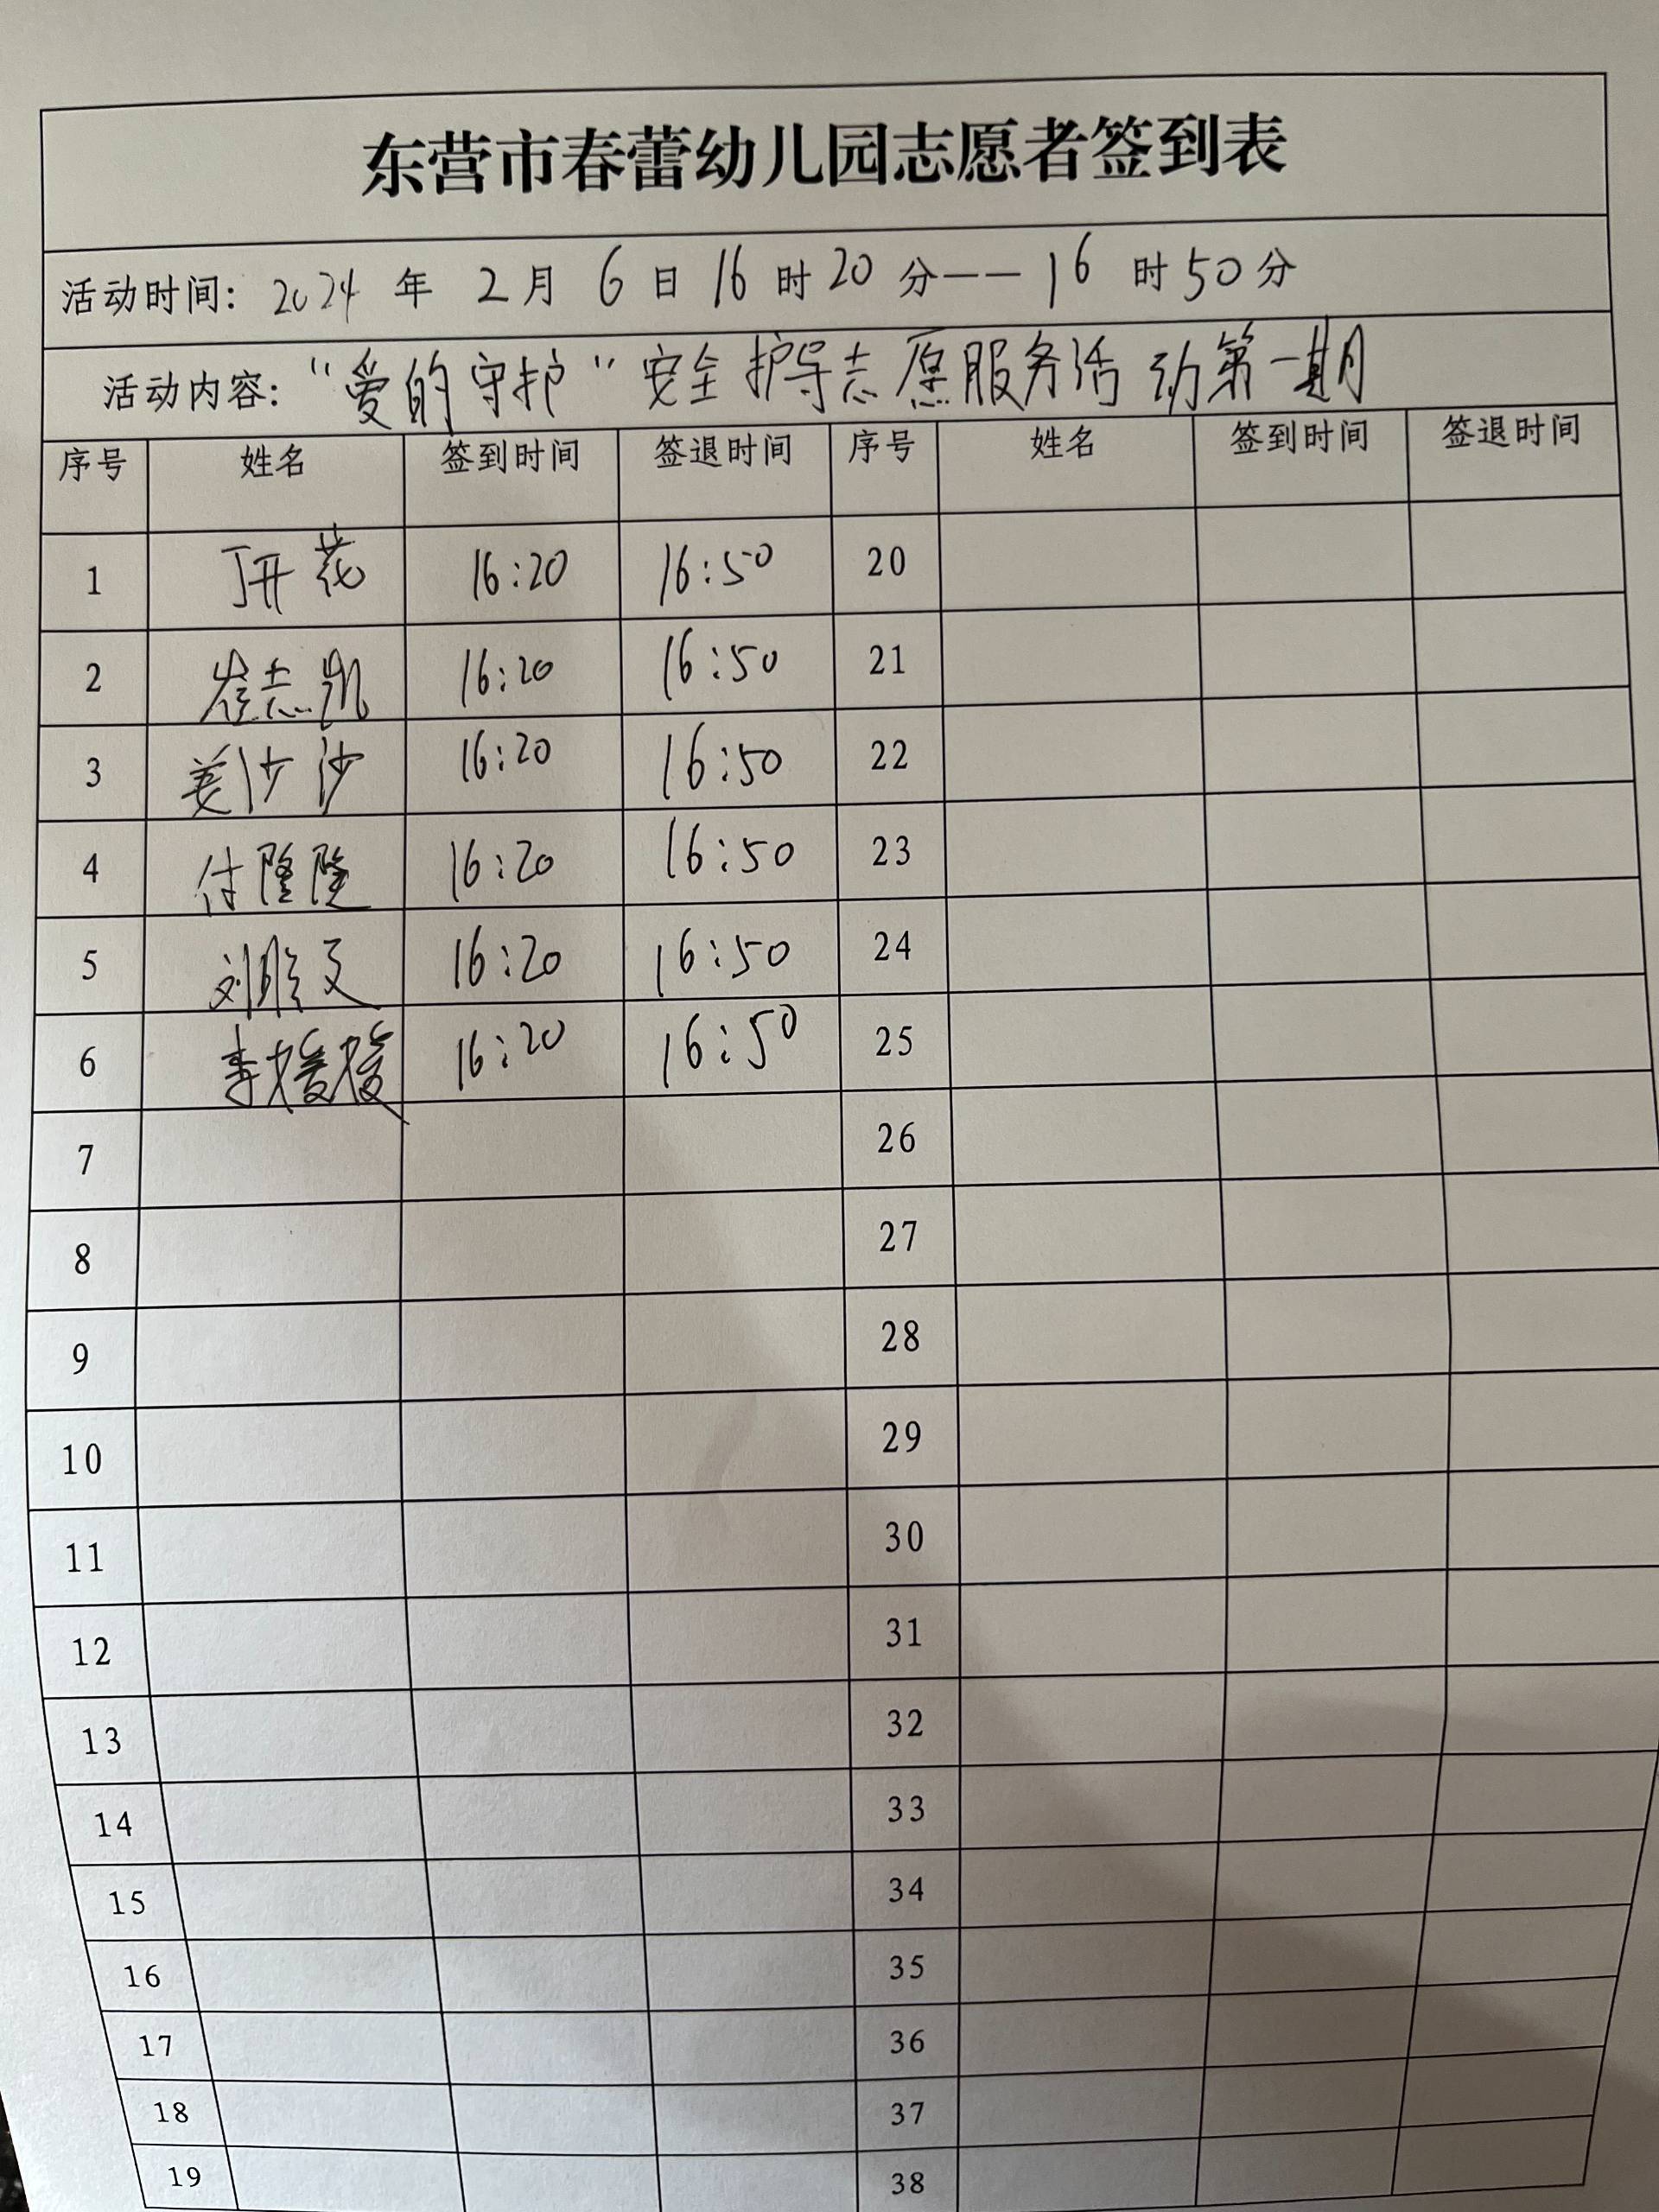 东营市春蕾幼儿园志愿者签到表
活动时间: 2024 年 2 月 6 日 16 时 20 分——16 时 50 分
活动内容: “爱的守护”安全护导志愿服务活动第一期
序号 姓名 签到时间 签退时间 序号 姓名 签到时间 签退时间
1 丁开花 16:20 16:50 20
2 崔志凯 16:20 16:50 21
3 姜沙沙 16:20 16:50 22
4 付隆隆 16:20 16:50 23
5 刘 文 16:20 16:50 24
6 李媛媛 16:20 16:50 25
7 26
8 27
9 28
10 29
11 30
12 31
13 32
14 33
15 34
16 35
17 36
18 37
19 38